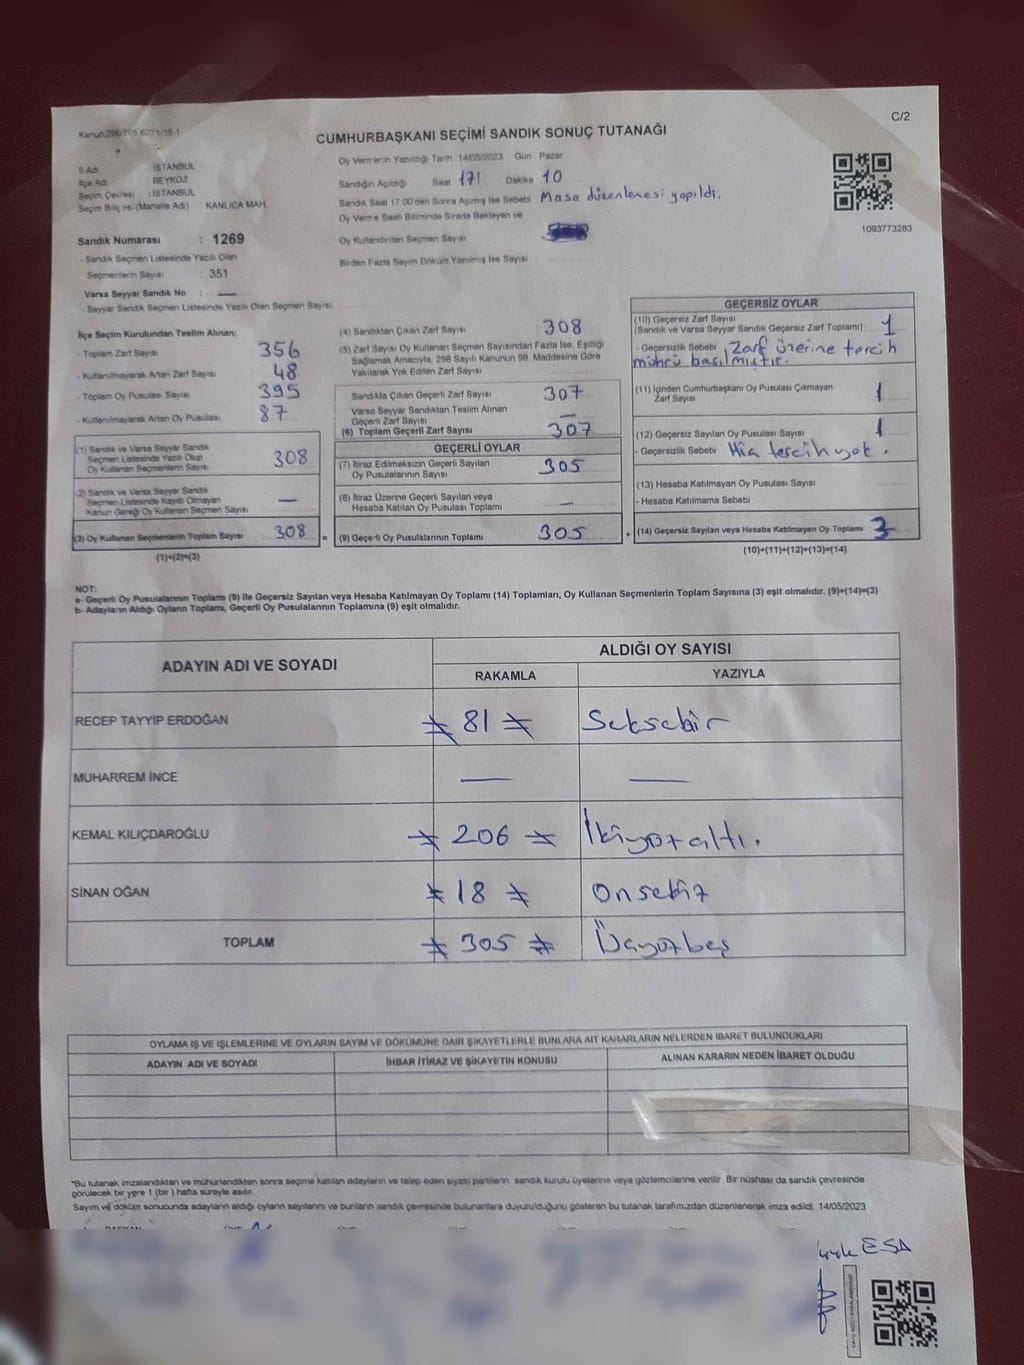 C/2
CUMHURBAŞKANI SEÇİMİ SANDIK SONUÇ TUTANAĞI
1093773283
İl Adı : İSTANBUL
İlçe Adı : BEYKOZ
Seçim Çevresi : İSTANBUL
Seçim Bölgesi (Mahalle Adı) KANLICA MAH.
Sandık Numarası : 1269
- Sandık Seçmen Listesinde Yazılı Olan
Seçmenlerin Sayısı : 351
Varsa Seyyar Sandık No : —
- Seyyar Sandık Seçmen Listesinde Yazılı Olan Seçmen Sayısı
Oy Vermenin Yapıldığı Tarih 14/05/2023 Gün Pazar
Sandığın Açıldığı Saat 17 Dakika 10
Sandık Saat 17:00'den Sonra Açılmış İse Sebebi Masa düzenlemesi yapıldı.
Oy Verme Saati Bitiminde Sırada Bekleyen ve
Oy Kullandırılan Seçmen Sayısı
Birden Fazla Sayım Döküm Yapılmış İse Sayısı
İlçe Seçim Kurulundan Teslim Alınan:
- Toplam Zarf Sayısı 356
- Kullanılmayarak Artan Zarf Sayısı 48
- Toplam Oy Pusulası Sayısı 395
- Kullanılmayarak Artan Oy Pusulası 87
(1) Sandık ve Varsa Seyyar Sandık
Seçmen Listesinde Yazılı Olup
Oy Kullanan Seçmenlerin Sayısı 308
(2) Sandık ve Varsa Seyyar Sandık
Seçmen Listesinde Kayıtlı Olmayan
Kanun Gereği Oy Kullanan Seçmen Sayısı —
(3) Oy Kullanan Seçmenlerin Toplam Sayısı 308 =
(1)+(2)=(3)
(4) Sandıktan Çıkan Zarf Sayısı 308
(5) Zarf Sayısı Oy Kullanan Seçmen Sayısından Fazla İse, Eşitliği
Sağlamak Amacıyla, 298 Sayılı Kanunun 98. Maddesine Göre
Yakılarak Yok Edilen Zarf Sayısı
Sandıkta Çıkan Geçerli Zarf Sayısı 307
Varsa Seyyar Sandıktan Teslim Alınan
Geçerli Zarf Sayısı —
(6) Toplam Geçerli Zarf Sayısı 307
GEÇERLİ OYLAR
(7) İtiraz Edilmeksizin Geçerli Sayılan
Oy Pusulalarının Sayısı 305
(8) İtiraz Üzerine Geçerli Sayılan veya
Hesaba Katılan Oy Pusulası Toplamı —
(9) Geçerli Oy Pusulalarının Toplamı 305 +
GEÇERSİZ OYLAR
(10) Geçersiz Zarf Sayısı
(Sandık ve Varsa Seyyar Sandık Geçersiz Zarf Toplamı) : 1
- Geçersizlik Sebebi Zarf üzerine tercih
mührü basılmıştır.
(11) İçinden Cumhurbaşkanı Oy Pusulası Çıkmayan
Zarf Sayısı 1
(12) Geçersiz Sayılan Oy Pusulası Sayısı 1
- Geçersizlik Sebebi Hiç tercih yok.
(13) Hesaba Katılmayan Oy Pusulası Sayısı
- Hesaba Katılmama Sebebi
(14) Geçersiz Sayılan veya Hesaba Katılmayan Oy Toplamı 3
(10)+(11)+(12)+(13)=(14)
NOT:
a- Geçerli Oy Pusulalarının Toplamı (9) ile Geçersiz Sayılan veya Hesaba Katılmayan Oy Toplamı (14) Toplamları, Oy Kullanan Seçmenlerin Toplam Sayısına (3) eşit olmalıdır. (9)+(14)=(3)
b- Adayların Aldığı Oyların Toplamı, Geçerli Oy Pusulalarının Toplamına (9) eşit olmalıdır.
ADAYIN ADI VE SOYADI
ALDIĞI OY SAYISI
RAKAMLA YAZIYLA
RECEP TAYYİP ERDOĞAN 81 Seksebir
MUHARREM İNCE — —
KEMAL KILIÇDAROĞLU 206 İkiyüzaltı.
SİNAN OĞAN 18 Onsekiz
TOPLAM 305 Üçyüzbeş
OYLAMA İŞ VE İŞLEMLERİNE VE OYLARIN SAYIM VE DÖKÜMÜNE DAİR ŞİKAYETLERLE BUNLARA AİT KARARLARIN NELERDEN İBARET BULUNDUKLARI
ADAYIN ADI VE SOYADI İHBAR İTİRAZ VE ŞİKAYETİN KONUSU ALINAN KARARIN NEDEN İBARET OLDUĞU
*Bu tutanak imzalandıktan ve mühürlendikten sonra seçime katılan adayların ve talep eden siyasi partilerin sandık kurulu üyelerine veya gözlemcilerine verilir. Bir nüshası da sandık çevresinde
görülecek bir yere 1 (bir) hafta süreyle asılır.
Sayım ve döküm sonucunda adayların aldığı oyların sayılarını ve bunların sandık çevresinde bulunanlara duyurulduğunu gösteren bu tutanak tarafımızdan düzenlenerek imza edildi. 14/05/2023
ESA